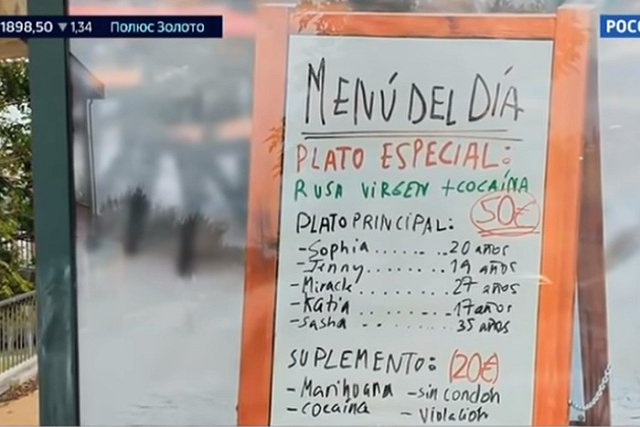 1898,50 ▼ 1,34 Полюс Золото
РОСС
MENÚ DEL DÍA
PLATO ESPECIAL:
RUSA VIRGEN + COCAÍNA
50€
PLATO PRINCIPAL:
- Sophia........ 20 años
- Jenny........ 19 años
- Miracle........ 27 años
- Katia ........ 17 años
- Sasha ........ 35 años
SUPLEMENTO: (20€)
- Marihuana - sin condon
- cocaína - violacion